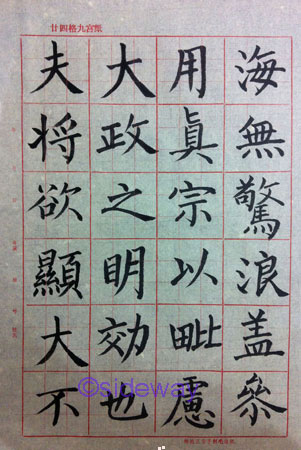 廿四格九宮紙
海無驚浪盖叅
用眞宗以毗慮
大政之明効也
夫将欲顯大不
©sideway